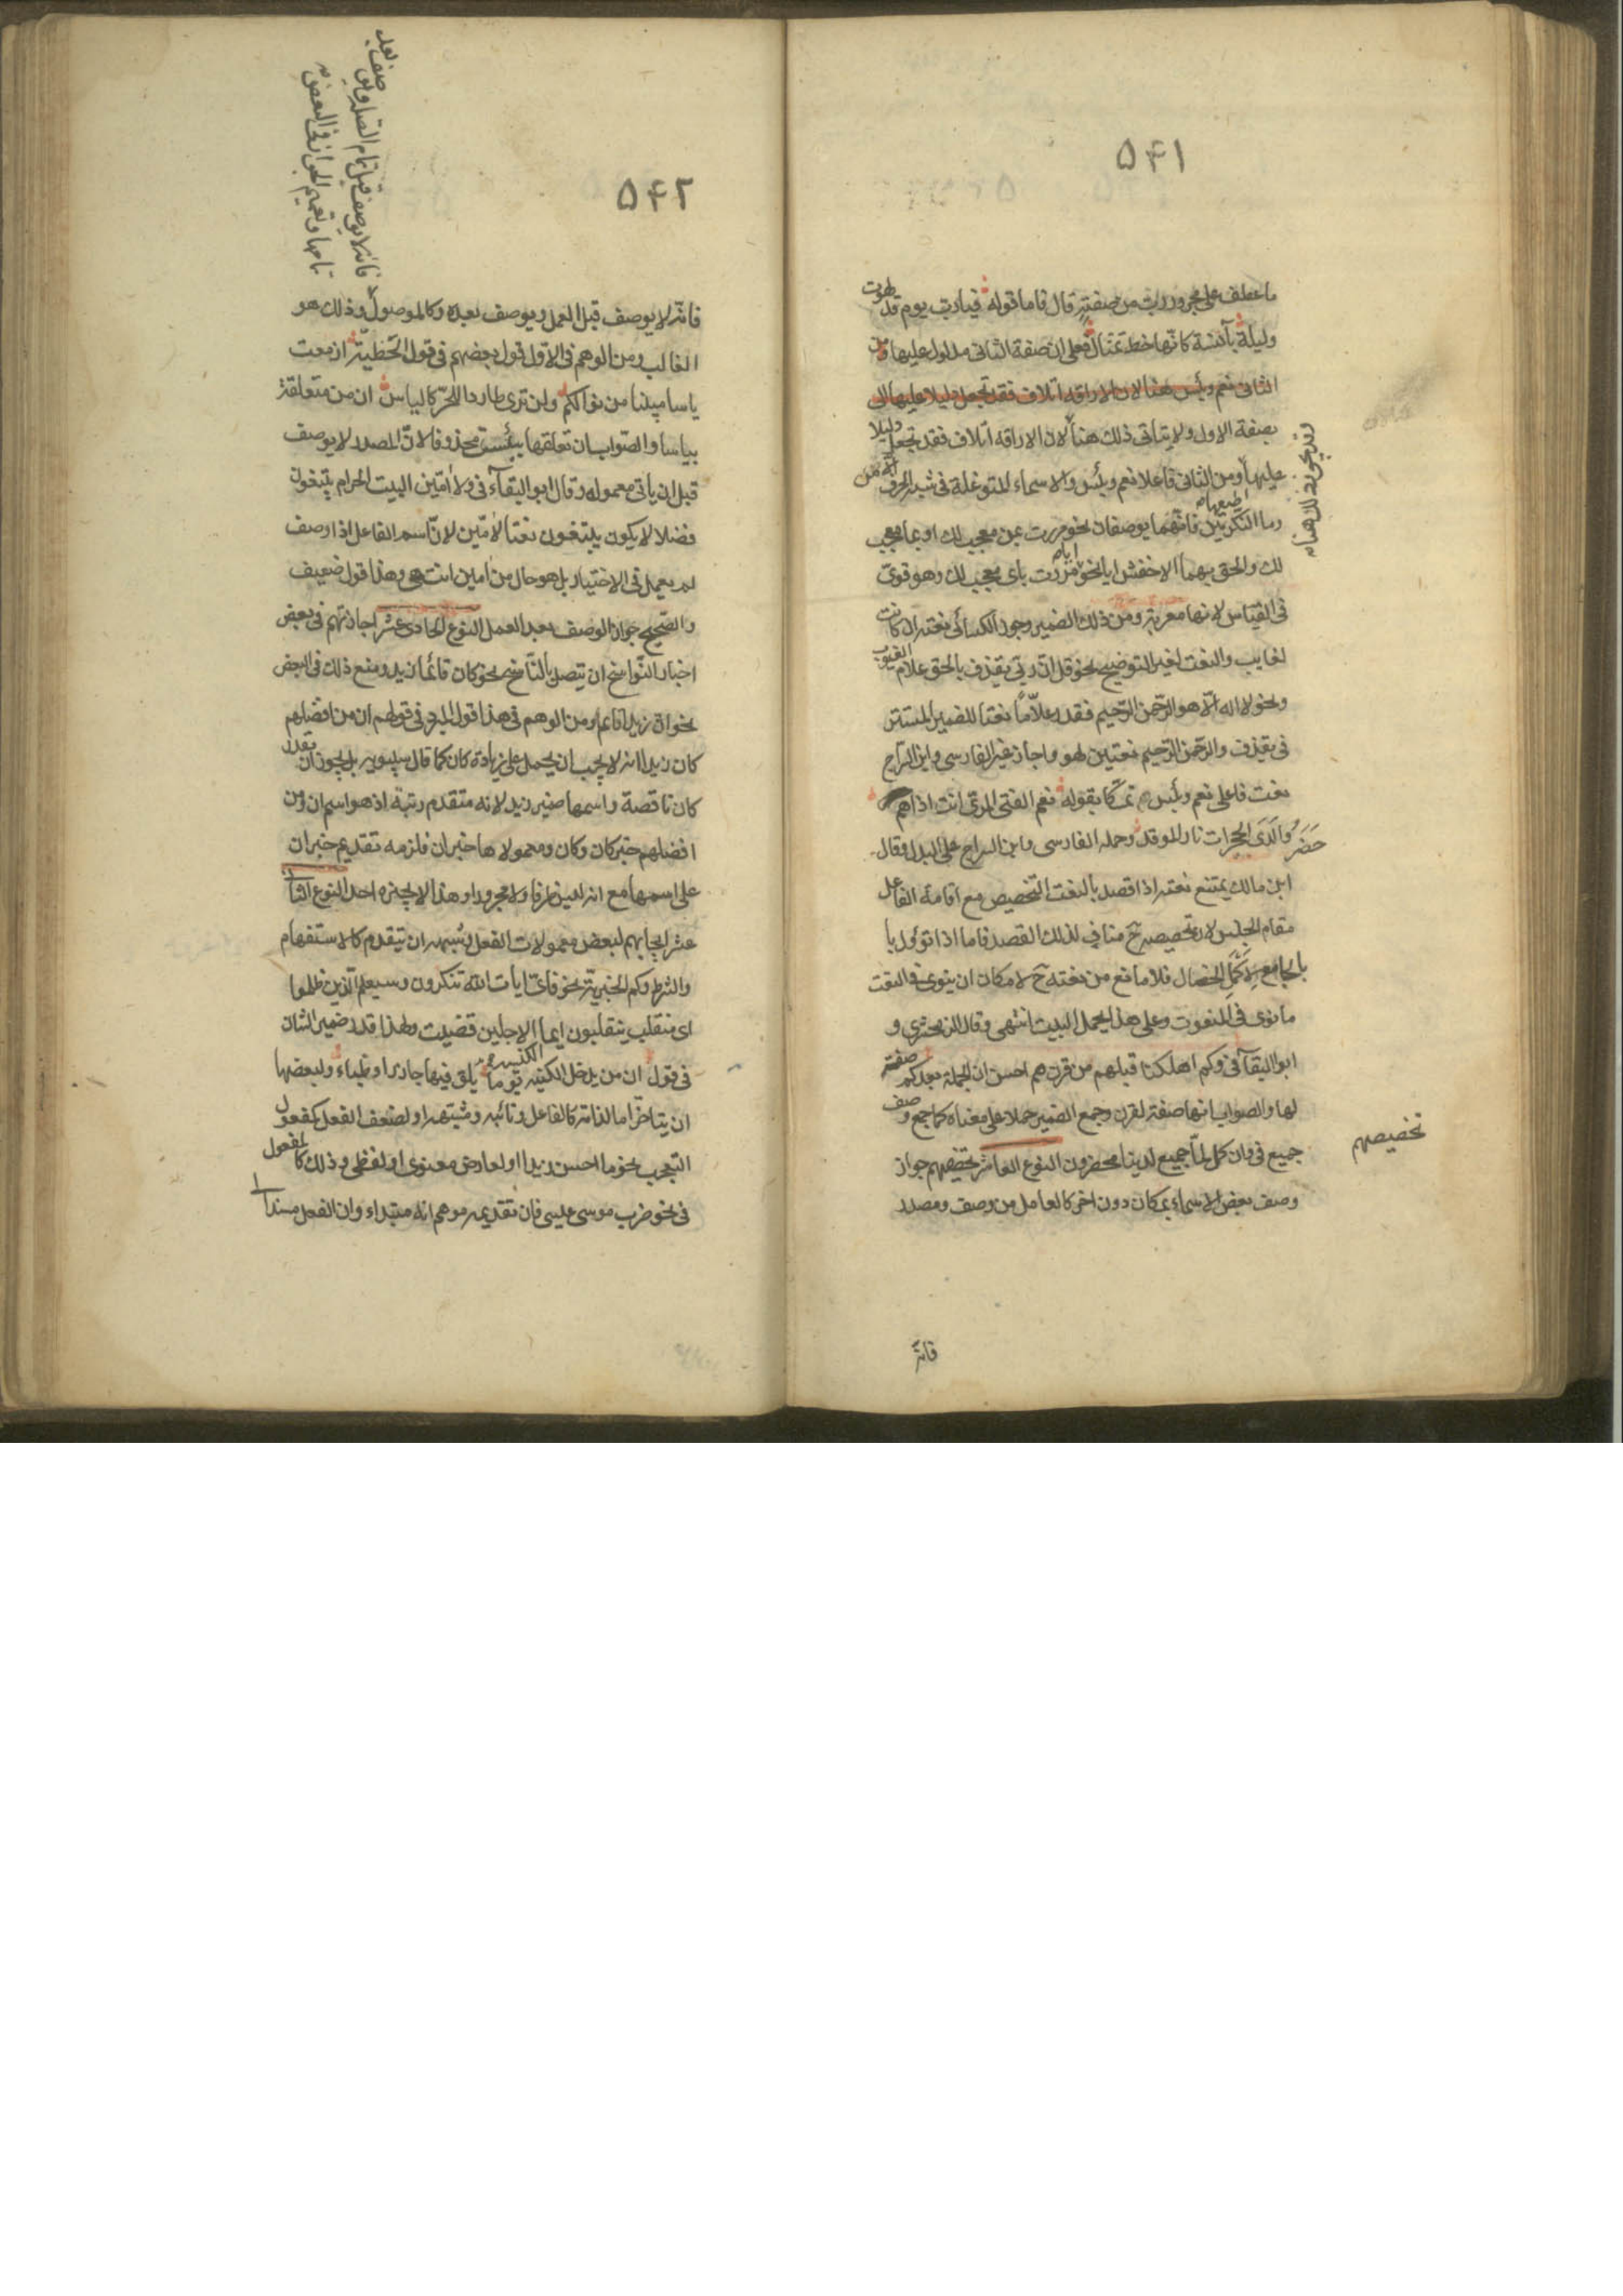 ۵۴۱
ما عطف على مجرور رب من صفة قال فاما قوله فيا رب يوم قد لهوت
وليلة بآنسة كانها خط تمثال فعلى ان صفة الثانى مدلول عليها ومن
الثانى نعم وبئس هنا لان الاراقه اتلاف فقد تجعل دليلا عليها الى
بصفة الاول ولا يتاتى ذلك هنا لان الاراقه اتلاف فقد تجعل دليلا
عليها ومن الثانى فاعلا نعم وبئس والاسماء المتوغلة فى شبه الحرف الا من
وما النكرتين فانهما يوصفان نحو مررت بمن معجب لك او بما معجب
لك والحق بهما الاخفش ايا نحو مررت باى معجب لك وهو قوى
فى القياس لانها معربة ومن ذلك الضمير وجوز الكسائى نعته ان كانت
لغايب والنعت لغير التوضيح نحو قل ان ربى يقذف بالحق علام الغيوب
ونحو لا اله الا هو الرحمن الرحيم فقدر علاما نعتا للضمير المستتر
فى يقذف والرحمن الرحيم نعتين لهو واجاز غير الفارسى وابن السراج
نعت فاعلى نعم وبئس تمسكا بقوله نعم الفتى المرى انت اذا هم
حضروا لدى الحجرات نار الموقد وحمله الفارسى وابن السراج على البدل وقال
ابن مالك يمتنع نعته اذا قصد بالنعت التخصيص مع اقامة الفاعل
مقام الجنس لان تخصيصه ح مناف لذلك القصد فاما اذا تؤول با
بالجامع لاكمل الخصال فلا مانع من نعته ح لامكان ان ينوى فى النعت
ما نوى فى المنعوت وعلى هذا يحمل البيت انتهى وقال الزمخشرى و
ابو البقآ فى وكم اهلكنا قبلهم من قرن هم احسن ان الجملة بعد كم صفة
لها والصواب انها صفة لقرن وجمع الضمير حملا على معناه كما جمع وصف
جميع فى وان كل لما جميع لدينا محضرون النوع العاشر تخصيصهم جواز
وصف بعض الاسماء بمكان دون اخر كالعامل من وصف ومصدر
تخصيصهم
فانه
۵۴۲
فانه لا يوصف قبل العمل ويوصف بعده وكالموصول وذلك هو
الغالب ومن الوهم فى الاول قول بعضهم فى قول الحطيئة ازمعت
ياسا مبينا من نوالكم ولن ترى طاردا للحر كالياس ان من متعلقة
بياسا والصواب ان تعلقها بيئست محذوفا لان المصدر لا يوصف
قبل ان ياتى معموله وقال ابو البقآء فى ولا آمين البيت الحرام يبتغون
فضلا لا يكون يبتغون نعتا لآمين لان اسم الفاعل اذا وصف
لم يعمل فى الاختيار بل هو حال من امين انتهى وهذا قول ضعيف
والصحيح جواز الوصف بعد العمل النوع الحادى عشر اجازتهم فى بعض
اخبار النواسخ ان يتصل بالناسخ نحو كان قائما زيد ومنع ذلك فى البعض
نحو ان زيدا قائم ومن الوهم فى هذا قول المبرد فى قولهم ان من افضلهم
كان زيدا انه لا يجب ان يحمل على زيادة كان كما قال سيبويه بل يجوز ان تقدر
كان ناقصة واسمها ضمير زيد لانه متقدم رتبة اذ هو اسم ان ومن
افضلهم خبر كان وكان ومعمولاها خبر ان فلزمه تقديم خبر ان
على اسمها مع انه ليس ظرفا ولا مجرورا وهذا لا يجيزه احد النوع الثانى
عشر ايجابهم لبعض معمولات الفعل وشبهه ان يتقدم كالاستفهام
والشرط وكم الخبرية نحو فاى ايات الله تنكرون وسيعلم الذين ظلموا
اى منقلب ينقلبون ايما الاجلين قضيت ولهذا قدر ضمير الشان
فى قول ان من يدخل الكنيسة يوما يلق فيها جاذرا وظباء ولبعضها
ان يتاخر اما لذاته كالفاعل ونائبه ومشبهه او لضعف الفعل كمفعول
التعجب نحو ما احسن زيدا او لعارض معنوى او لفظى وذلك كالمفعول
فى نحو ضرب موسى عيسى فان تقديمه موهم انه مبتداء وان الفعل مسندا